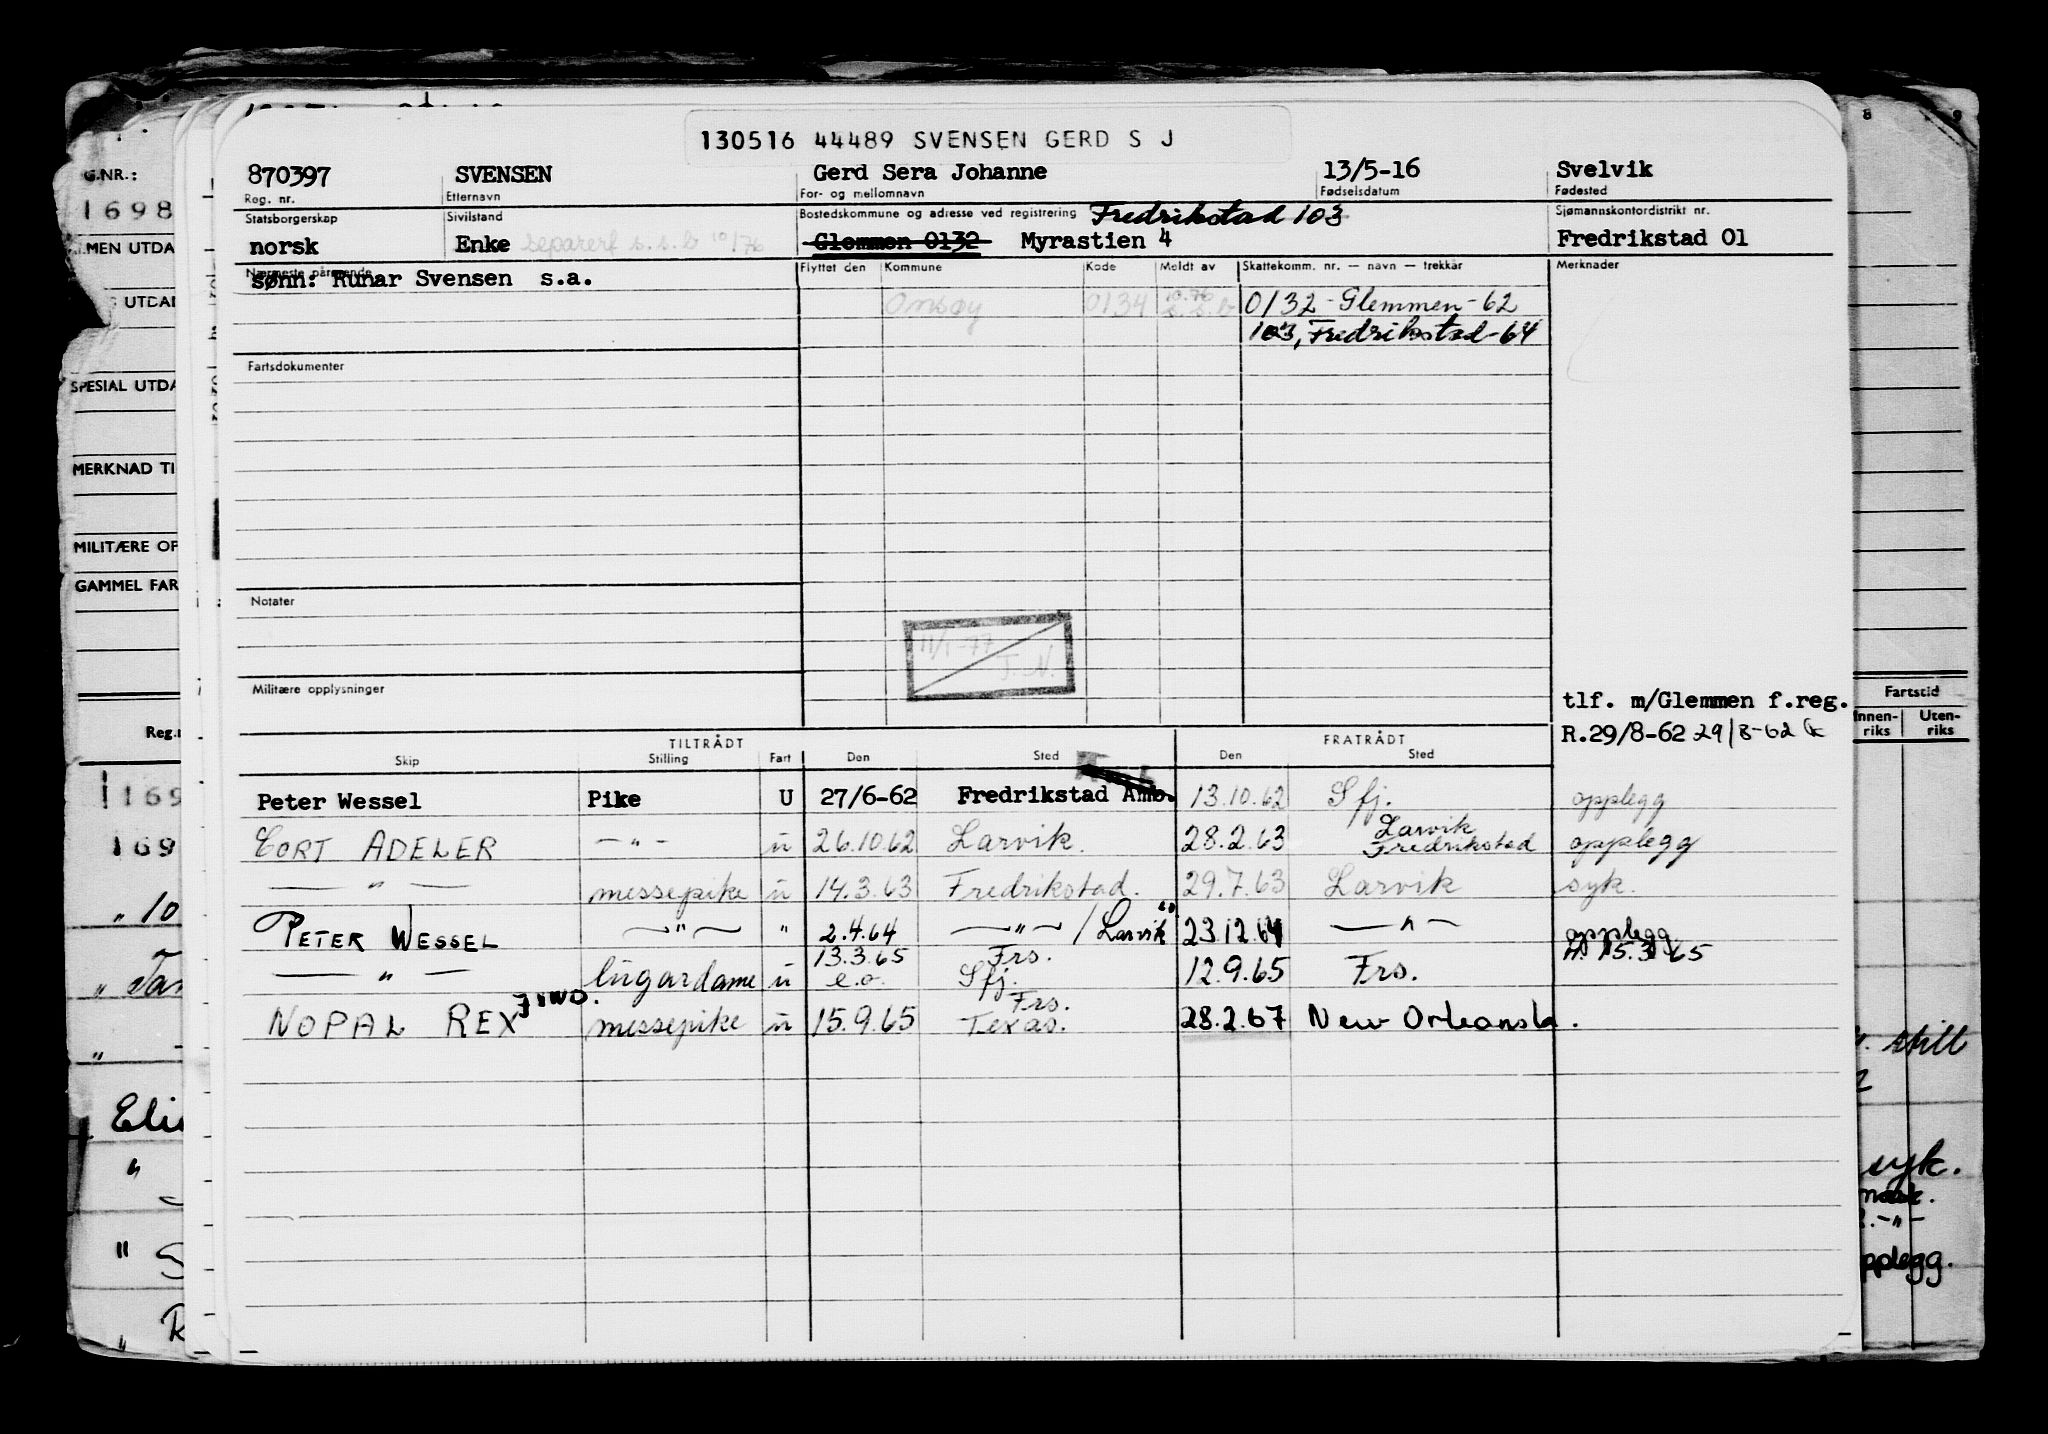 130516 44489 SVENSEN GERD S J
870397 SVENSEN Gerd Sera Johanne 13/5-16 Svelvik
Reg. nr. Etternavn For- og mellomnavn Fødselsdatum Fødested
Statsborgerskap Sivilstand Bostedskommune og adresse ved registrering Fredrikstad 103 Sjømannskontordistrikt nr.
norsk Enke separert s.s.b 10/76 Glemmen 0132 Myrastien 4 Fredrikstad 01
Nærmeste pårørende Flyttet den Kommune Kode Meldt av Skattekomm. nr. — navn — trekkår Merknader
sønn: Runar Svensen s.a.
Onsøy 0134 10.76 s.s.b 0132 - Glemmen - 62
103, Fredrikstad - 64
Fartsdokumenter
Notater
11/1-77 T.N.
Militære opplysninger
tlf. m/Glemmen f.reg.
R.29/8-62 29/8-62
TILTRÅDT FRATRÅDT
Skip Stilling Fart Den Sted Den Sted
Peter Wessel Pike U 27/6-62 Fredrikstad Amb. 13.10.62 Sfj. opplegg
CORT ADELER — " — u 26.10.62 Larvik. 28.2.63 Larvik Fredrikstad opplegg
— " — messepike u 14.3.63 Fredrikstad. 29.7.63 Larvik syk.
PETER WESSEL — " — " 2.4.64 — " — / Larvik 23.12.64 — " — opplegg
— " — lugardame u 13.3.65 e.o. Frs. Sfj. 12.9.65 Frs. 15.3.65
NOPAL REX JIWO. messepike u 15.9.65 Frs. Texas. 28.2.67 New Orleans La.
G.NR.:
1698
SPESIAL UTDA
MERKNAD TI
MILITÆRE OP
GAMMEL FAR
Reg.
169
169
" 10
Eli
8 9
Fartstid
Innen-riks Uten-riks
still
syk.
mask.
pplegg.